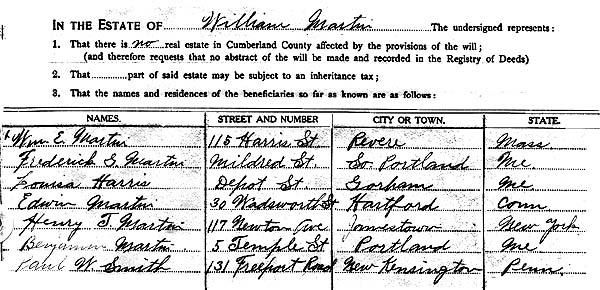 IN THE ESTATE OF William Martin The undersigned represents:
1. That there is no real estate in Cumberland County affected by the provisions of the will;
(and therefore requests that no abstract of the will be made and recorded in the Registry of Deeds)
2. That............part of said estate may be subject to an inheritance tax;
3. That the names and residences of the beneficiaries so far as known are as follows:
NAMES. STREET AND NUMBER CITY OR TOWN. STATE.
Wm E. Martin 115 Harris St Revere Mass
Frederick S. Martin Mildred St. So Portland Me
Louisa Harris Depot St. Gorham Me
Edwin Martin 30 Wadsworth St Hartford Conn
Henry J Martin 117 Newton Ave Jamestown New York
Benjamin Martin 5 Temple St Portland Me
Paul W. Smith 131 Freeport Road New Kensington Penn